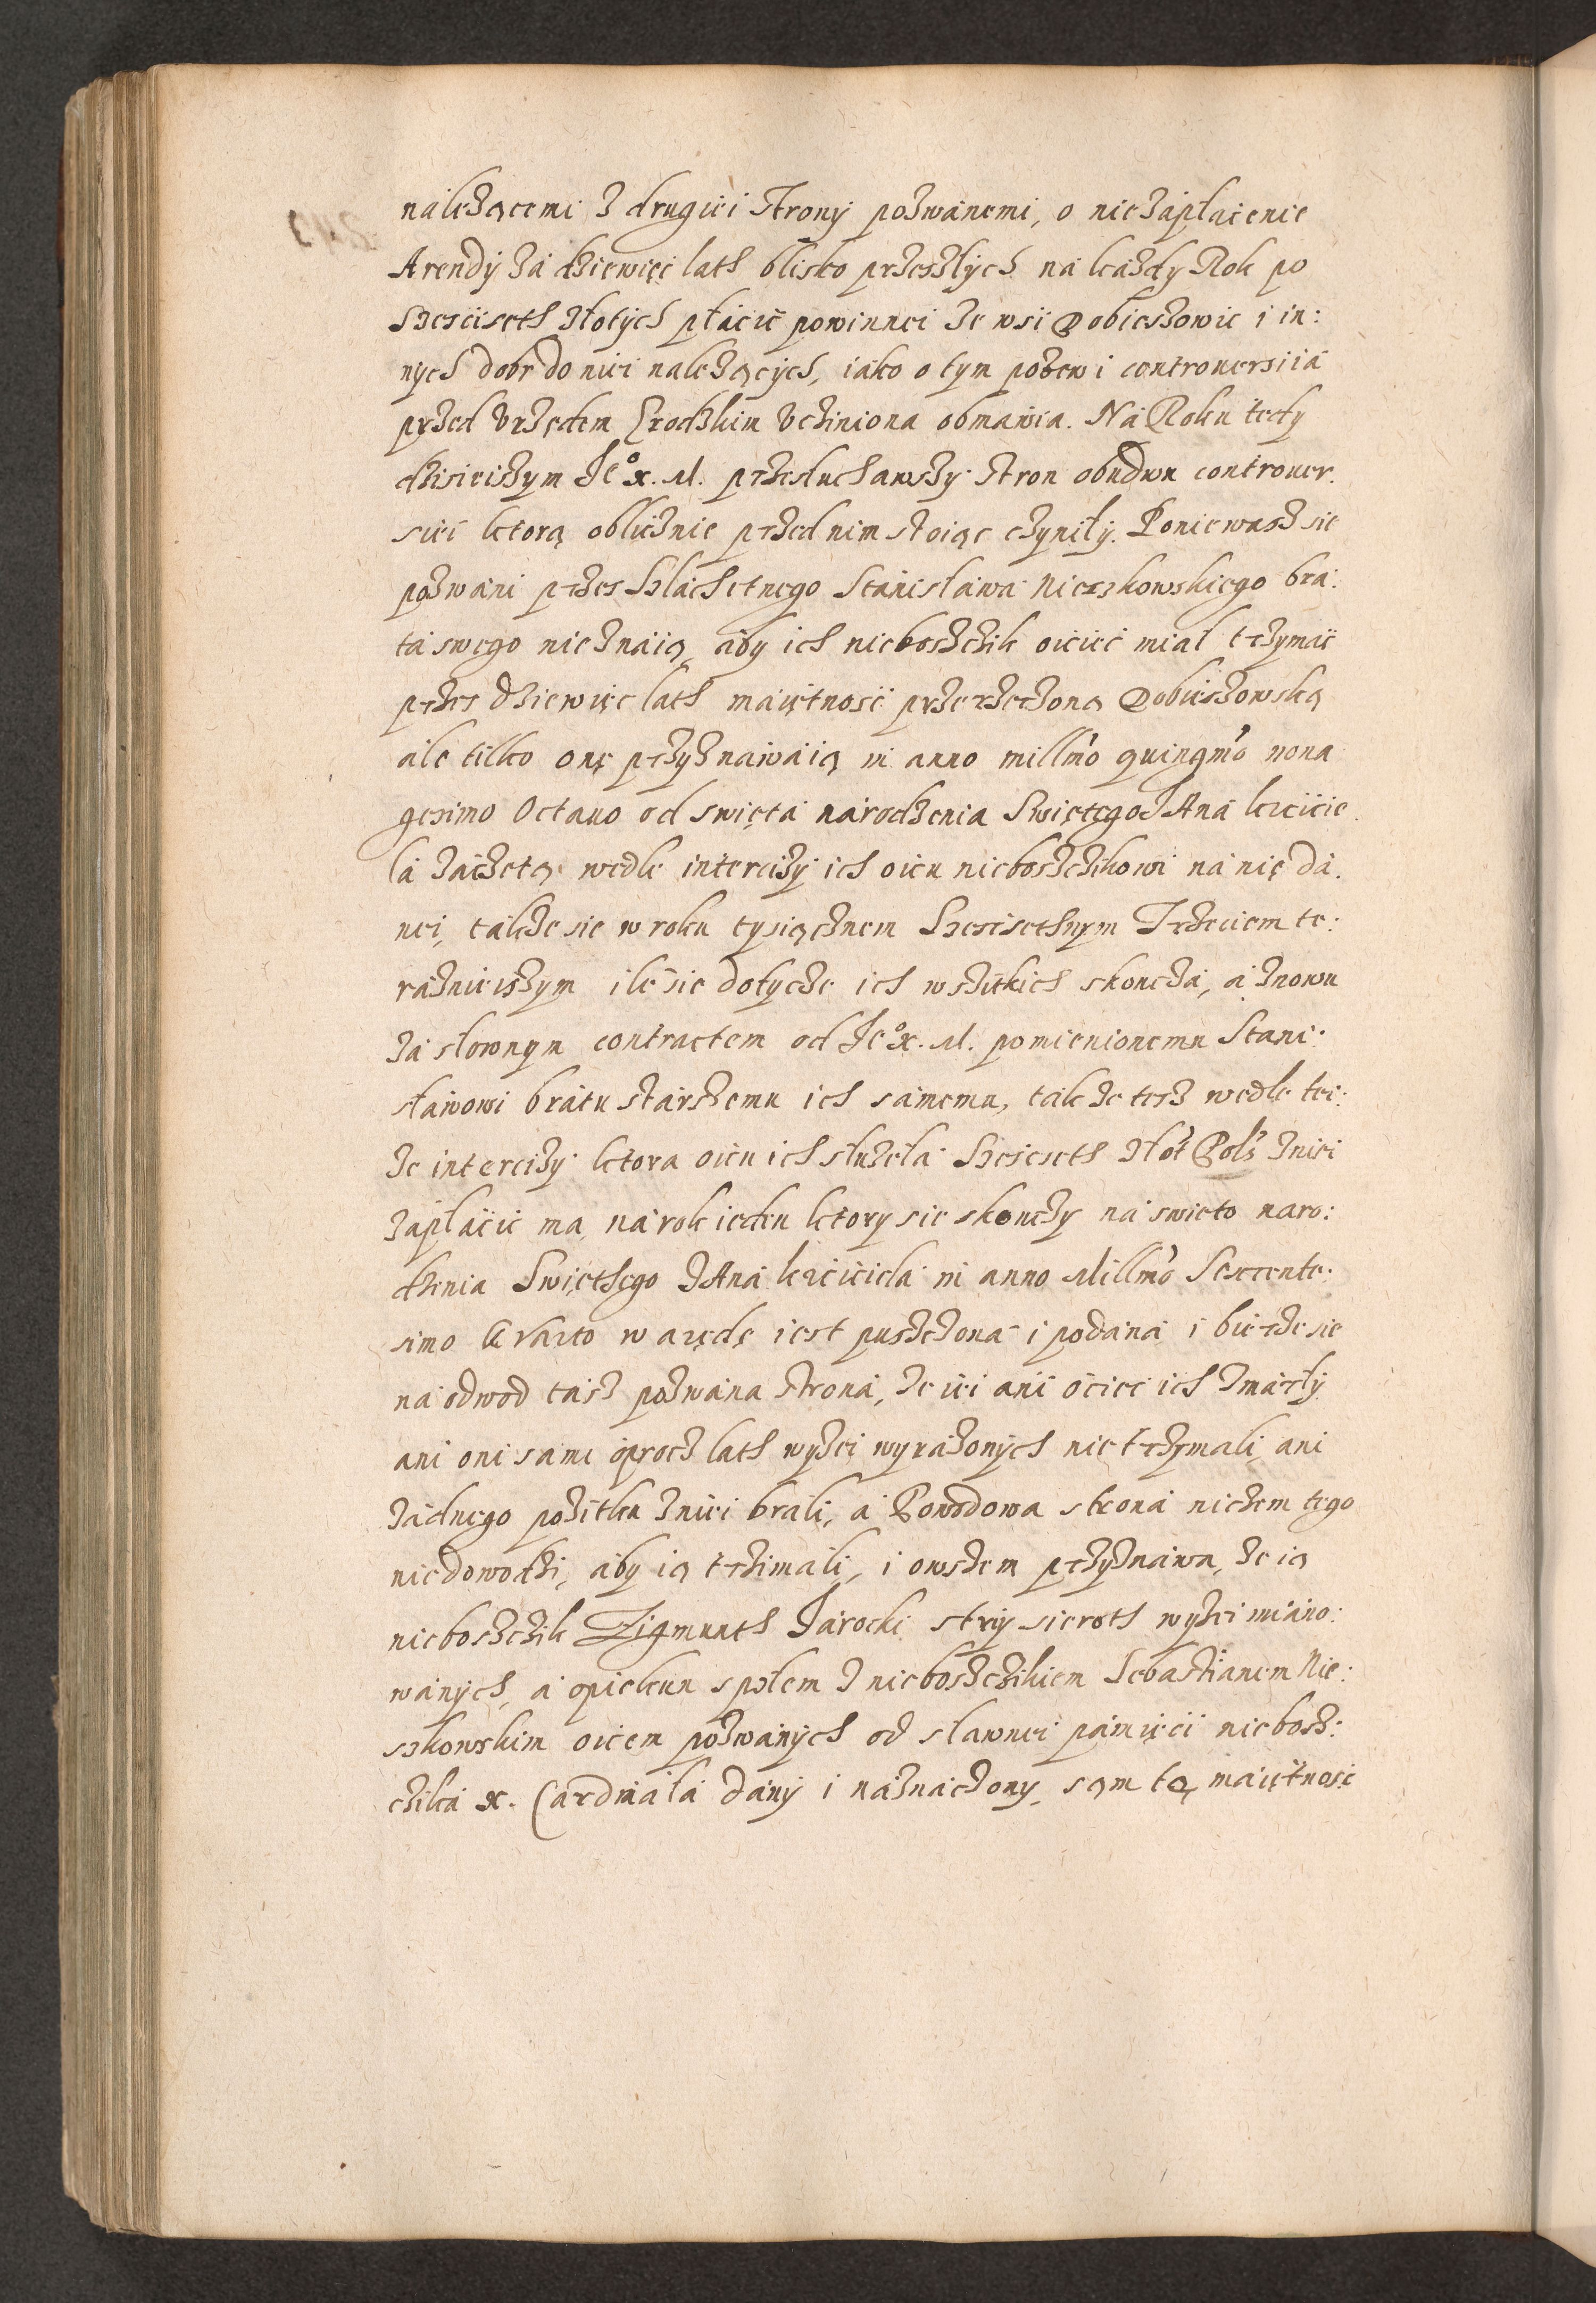 należącemi z drugiei strony pozwanemi, o niezapłacenie
Arendy za dziewięć lath blisko przeszłych na każdy Rok po
Sześciseth złotych płacić powinnei ze wsi Dobieszowic i in:
nych dobr do niei należących, iako o tym pozew i controuersiia
przed Vrzędem Grodzkim vcziniona obmawia. Na Roku tedy
dzisieiszym Je° x. M. przesłuchawszy stron obudwu controuer.
siei ktorą oblicznie przed nim stoiąc czyniły. Poniewasz sie
pozwani przes Szlachetnego Stanisława Nieszkowskiego bra:
ta swego nieznaią, aby ich nieboszczik ociec miał trzymać
przes dziewięć lath maiętność przerzeczoną Dobieszowską
ale tilko onę przyznawaią in anno millmo quingmo nona
gesimo Octauo od swięta narodzenia Swiętego JAna krzcicie
la zaczętą wedle interciży ich oicu nieboszczikowi na nię da.
nei, takze sie w roku tysiącznem Szescsethnym Trzeciem te:
raznieiszym ile sie dotycze ich wszitkich skończa, a znowu
za słownym contractem od Je° x. M. pomienionemu Stani:
sławowi bratu starszemu ich samemu, takze tesz wedle tei:
ze interciży ktora oicu ich służeła Szescseth złot Pols z niei
zapłacić ma, na rok ieden ktory sie skonczy na swieto naro:
dzenia Swięthego JAna krzciciela in anno Millmo Sescente:
simo Qvarto w arędę iest puszczona i podana i bierze sie
na odwod tasz pozwana strona, ze iei ani ociec ich zmarły
ani oni sami oprocz lath wyżei wyrażonych nie trzymali, ani
żadnego pożitku z niei brali, a Powodowa strona niczem tego
niedowodzi, aby ią trzimali, i owszem przyznawa, ze ią
nieboszczik Zigmunth Jarocki stryj sieroth wyżei miano:
wanych, a opiekun społem z nieboszczikiem Sebastianem Nie:
szkowskim oicem pozwanych od sławnei pamięci niebosz:
czika x. Cardinała dany i naznaczony, sąm tą maiętnosc